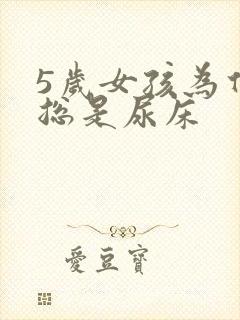 5歲女孩為
總是尿床
愛豆寶